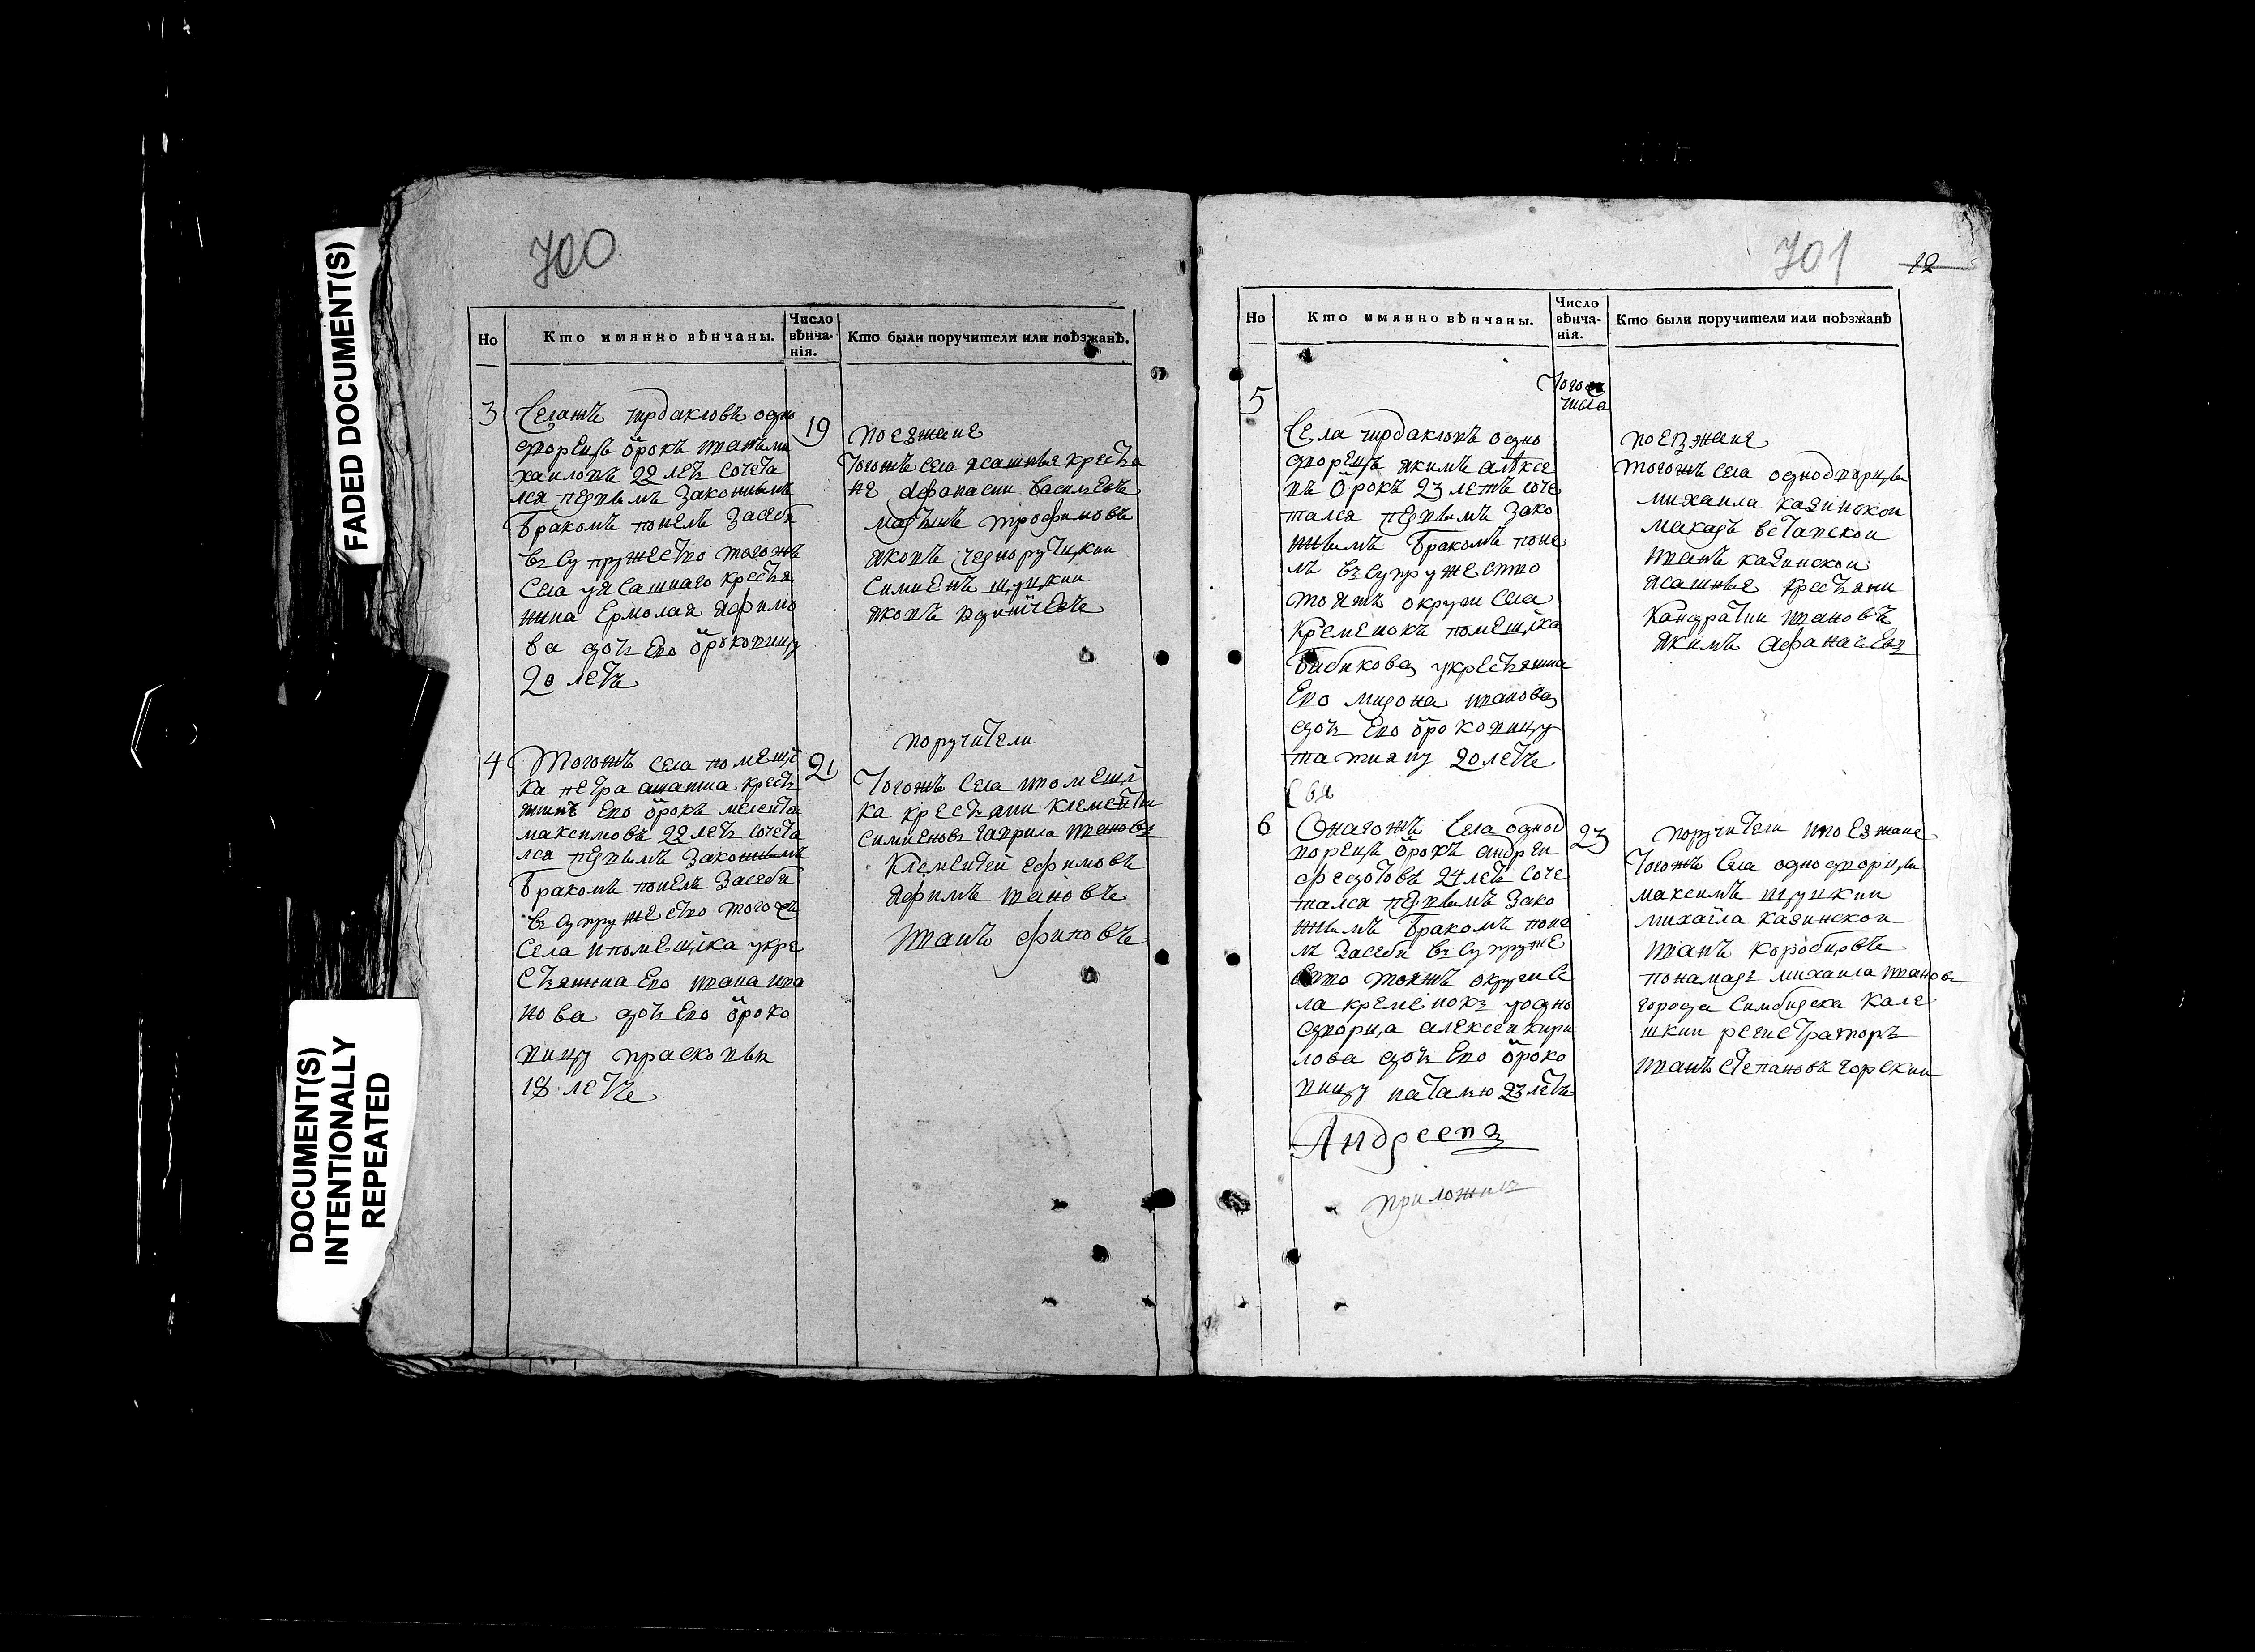 FADED DOCUMENT(S)
DOCUMENT(S)
INTENTIONALLY
REPEATED
700
Но
Кто имянно вѣнчаны.
Число
вѣнча-
нія.
Кто были поручители или поѣзжанѣ.
3
одно
дворецъ отрокъ иванъ ми
хаиловъ 22 летъ сочета
лся первымъ законнымъ
бракомъ понелъ засебя
въ супружество тогожъ
села уясашнаго крестья
нина Ермолая яфимо
ва дочь Ево
20 летъ
19
поезжане
тогожъ села ясашныя кресть
не Афанасии васильевъ
трофимовъ
яковъ
симиенъ щукин
яковъ
4
тогожъ села помещи
ка петра кресть
янинъ Ево отрокъ
максимовъ 22 летъ сочета
лся первымъ законнымъ
бракомъ понелъ засебя
въ супружество тогожъ
села ипомещика укре
стьянина Ево ивана ива
нова дочь Ево отроко
вицу
18 летъ
21
поручители
тогожъ села ипомещи
ка крестьяни клементии
симионовъ гаврила ивановъ
Клементей ефимовъ
Яфимъ ивановъ
иванъ
701
12
Но
Кто имянно вѣнчаны.
Число
вѣнча-
нія.
Кто были поручители или поѣзжанѣ
5
того
числа
Села одно
дворецъ якимъ алѣксе
въ отрокъ 23 летъ соче
тался первымъ зако
ннымъ бракомъ поне
лъ въсупружество
тояжъ округи села
Кременокъ помещика
бибикова укрестьянина
Ево мирона иванова
дочь Ево отроковицу
татияну 20 летъ
поезжане
тогожъ села однодворцы
михаила казинской
макаръ
иванъ казинской
ясашныя крестьяни
Кандратии ивановъ
якимъ афанасьевъ
6
Онагожъ села однод
ворецъ отрокъ андреи
федотовъ 24 летъ соче
тался первымъ зако
ннымъ бракомъ поне
лъ засебя въ супруже
ство тояжъ округи се
ла кременокъ уодно
дворца алексея кири
лова дочь Ево отроко
вицу наталю 23 летъ
Андреева
приложилъ
23
поручители ипоезжане
тогожъ села однодворцы
максимъ щукин
михаила казинской
иванъ коробцовъ
понамаръ михаила ивановъ
города Симбирска Кале
шкии регистраторъ
иванъ степановъ горскии